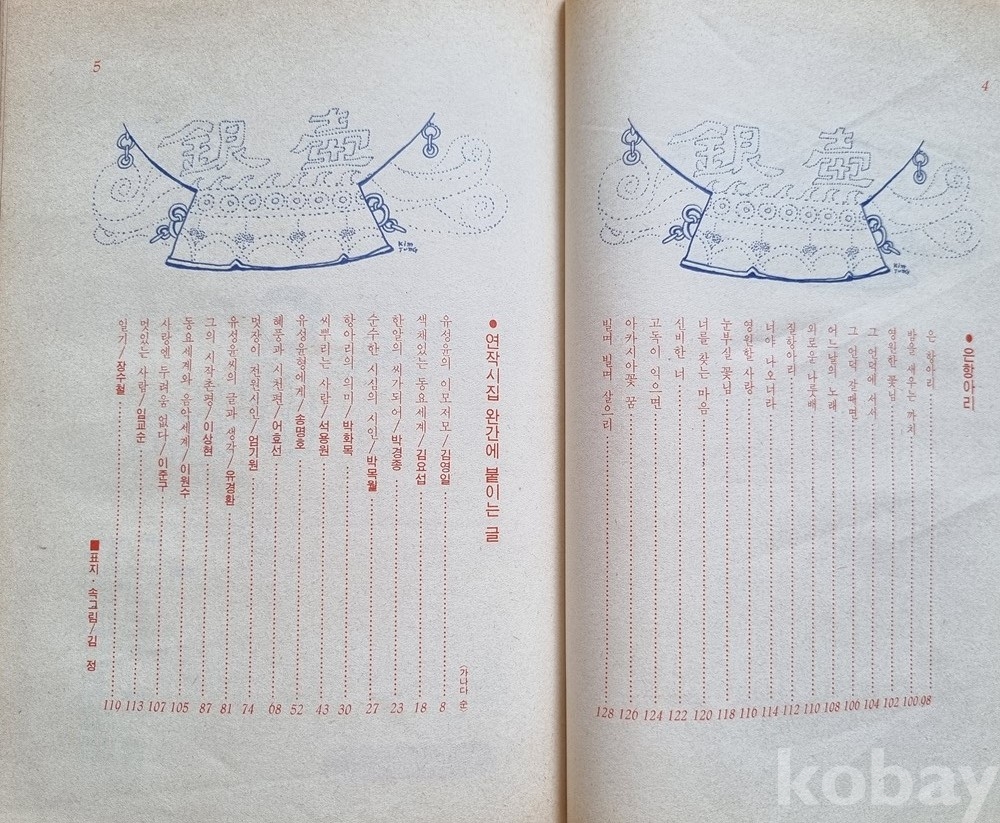 4
銀壺
KIM JUNG
●은항아리
은 항아리 98
밤을 새우는 까치 100
영원한 꽃님 102
그 언덕에 서서 104
그 언덕 갈때면 106
어느날의 노래 108
외로운 나룻배 110
질항아리 112
너야 나오너라 114
영원할 사랑 116
눈부실 꽃님 118
너를 찾는 마음 120
신비한 너 122
고독이 익으면 124
아카시아꽃 꿈 126
빌며 빌며 살으리 128
5
銀壺
KIM JUNG
●연작시집 완간에 붙이는 글
(가나다 순)
유성윤의 이모저모/김영일 8
색채있는 동요세계/김요섭 18
한알의 씨가되어/박경종 23
순수한 시심의 시인/박목월 27
항아리의 의미/박화목 30
씨뿌리는 사람/석용원 43
유성윤형에게/송명호 52
혜풍과 시천편/어효선 68
멋장이 전원시인/엄기원 74
유성윤씨의 글과 생각/유경환 81
그의 시작촌평/이상현 87
동요세계와 음악세계/이원수 105
사랑엔 두려움 없다/이준구 107
멋있는 사람/임교순 113
일기/장수철 119
■표지·속그림/김 정
kobay